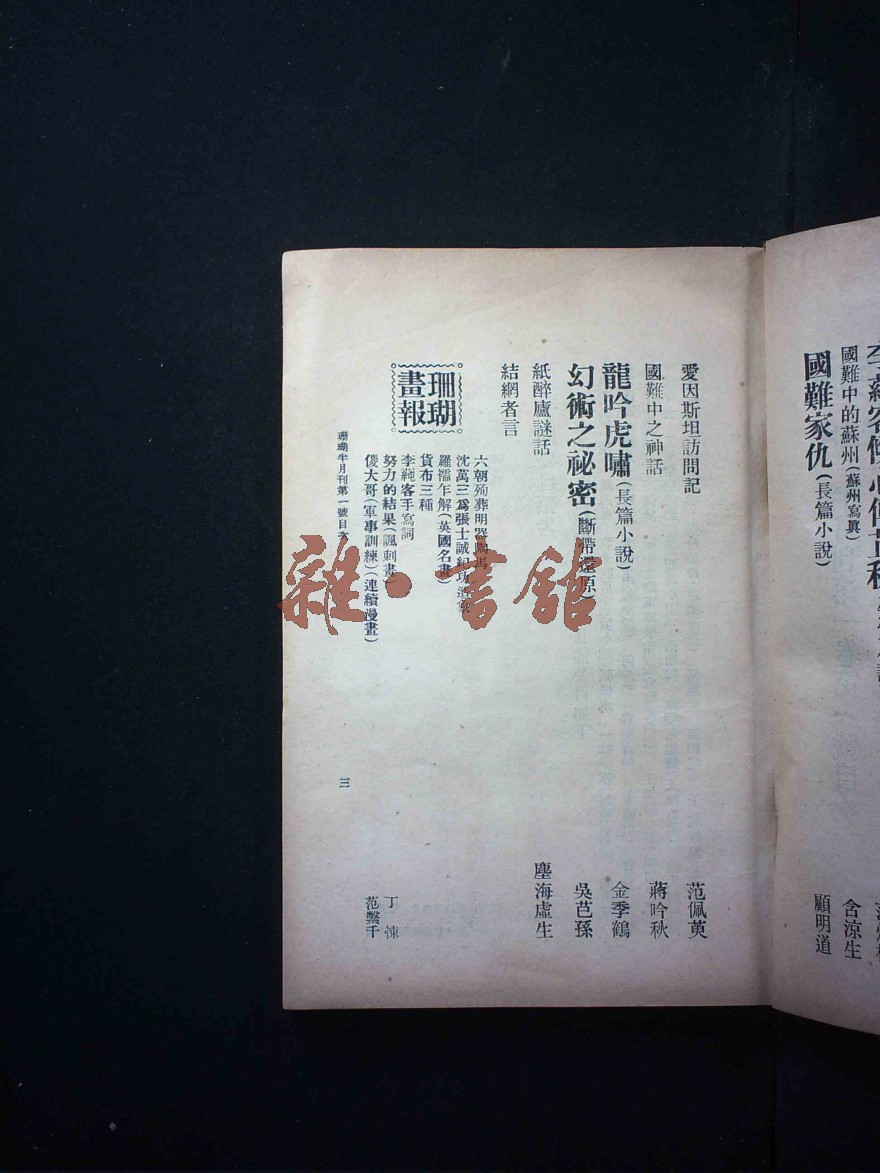 國難中的蘇州(蘇州寫真)
含涼生
國難家仇(長篇小說)
顧明道
愛因斯坦訪問記
范佩萸
國難中之神話
蔣吟秋
龍吟虎嘯(長篇小說)
金季鶴
幻術之祕密(斷帶還原)
吳芑孫
紙醉廬謎話
塵海虛生
結網者言
珊瑚畫報
六朝殉葬明器陶馬
沈萬三爲張士誠紀功
羅襦乍解(英國名畫)
貨布三種
李蒓客手寫詞
努力的結果(諷刺畫)
丁悚
儍大哥(軍事訓練)(連續漫畫)
范繫千
珊瑚半月刊第一號目次
三
雜·書館